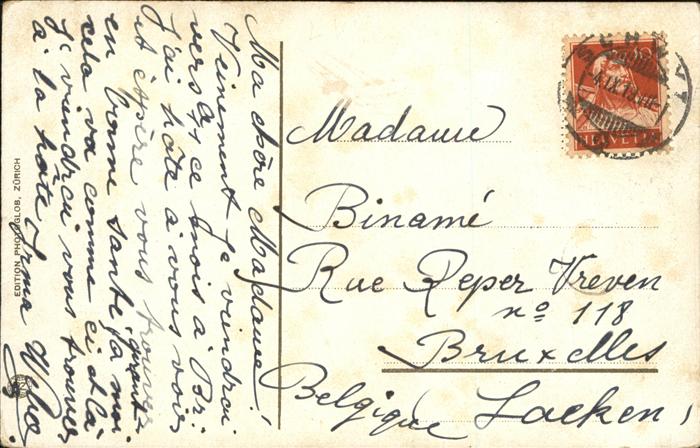 Ma chère Madame!
Vainement je viendrai
vers ce mois à Bri
J'ai hâte à vous voir
et espère vous trouver
en bonne santé, quant
à moi
cela va comme ci et là
Je viendrai vous trouver
à la hâte Irma
Madame
Binamé
Rue Reper Vreven
nº 118
Bruxelles
Belgique Laeken!
HELVETIA
EDITION PHOTOGLOB, ZÜRICH